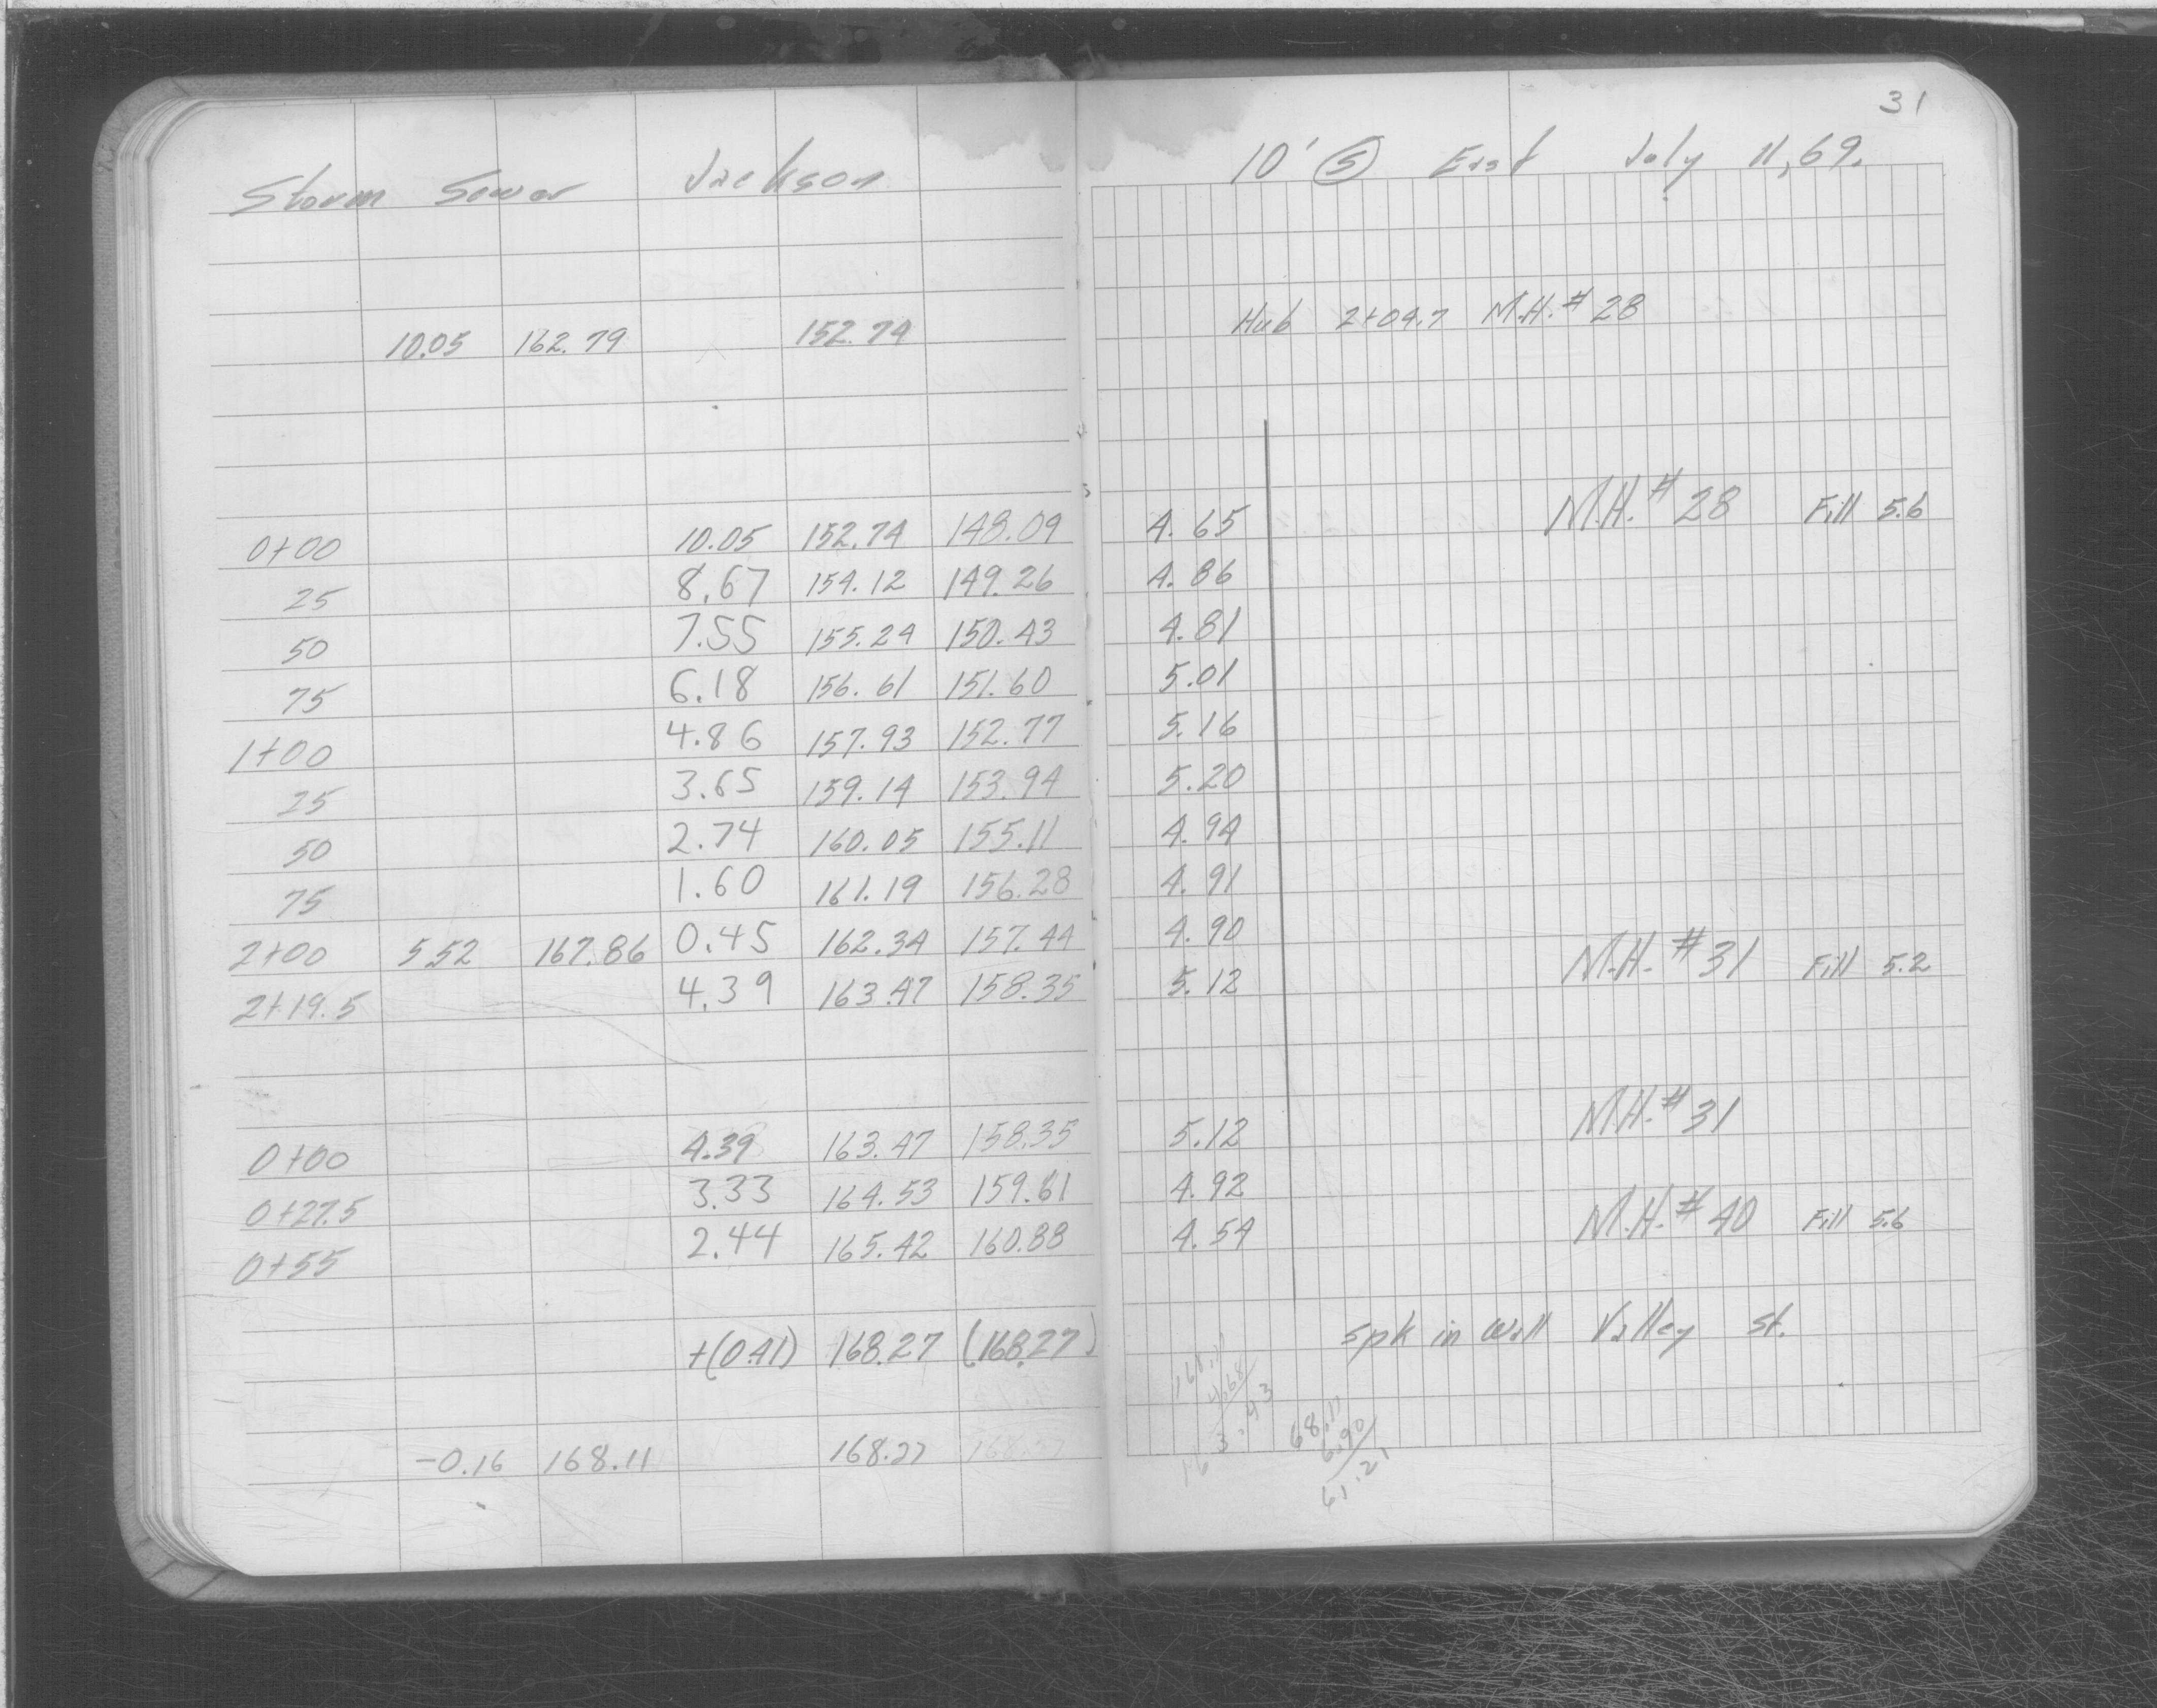 31
Storm Sewer Jackson 10' Ⓢ East July 11, 69.
10.05 162.79 152.74 Hub 2+09.7 M.H. # 28
0+00 10.05 152.74 148.09 4.65 M.H. # 28 Fill 5.6
25 8.67 154.12 149.26 4.86
50 7.55 155.24 150.43 4.81
75 6.18 156.61 151.60 5.01
1+00 4.86 157.93 152.77 5.16
25 3.65 159.14 153.94 5.20
50 2.74 160.05 155.11 4.94
75 1.60 161.19 156.28 4.91
2+00 5.52 167.86 0.45 162.34 157.44 4.90
2+19.5 4.39 163.47 158.35 5.12 M.H. # 31 Fill 5.2
0+00 4.39 163.47 158.35 5.12 M.H. # 31
0+27.5 3.33 164.53 159.61 4.92
0+55 2.44 165.42 160.88 4.54 M.H. # 40 Fill 5.6
+(0.41) 168.27 (168.27) spk in Wall Valley St.
-0.16 168.11 168.27 168.27
168.11
4.68
163.43
68.11
6.90
61.21